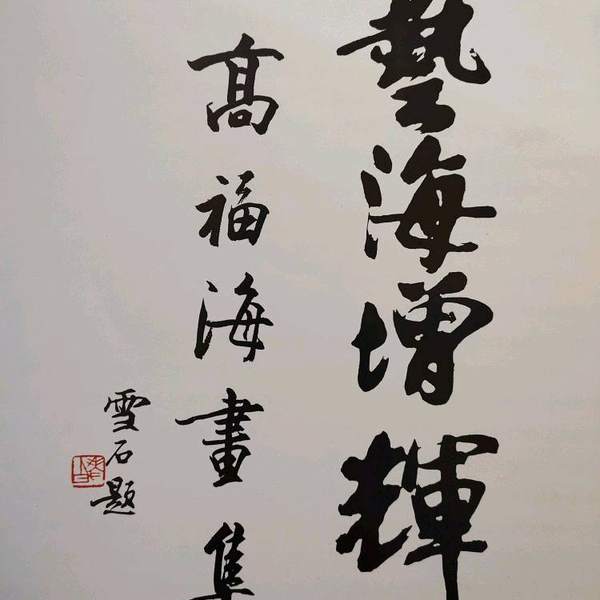 藝海增輝
高福海畫集
雪石題